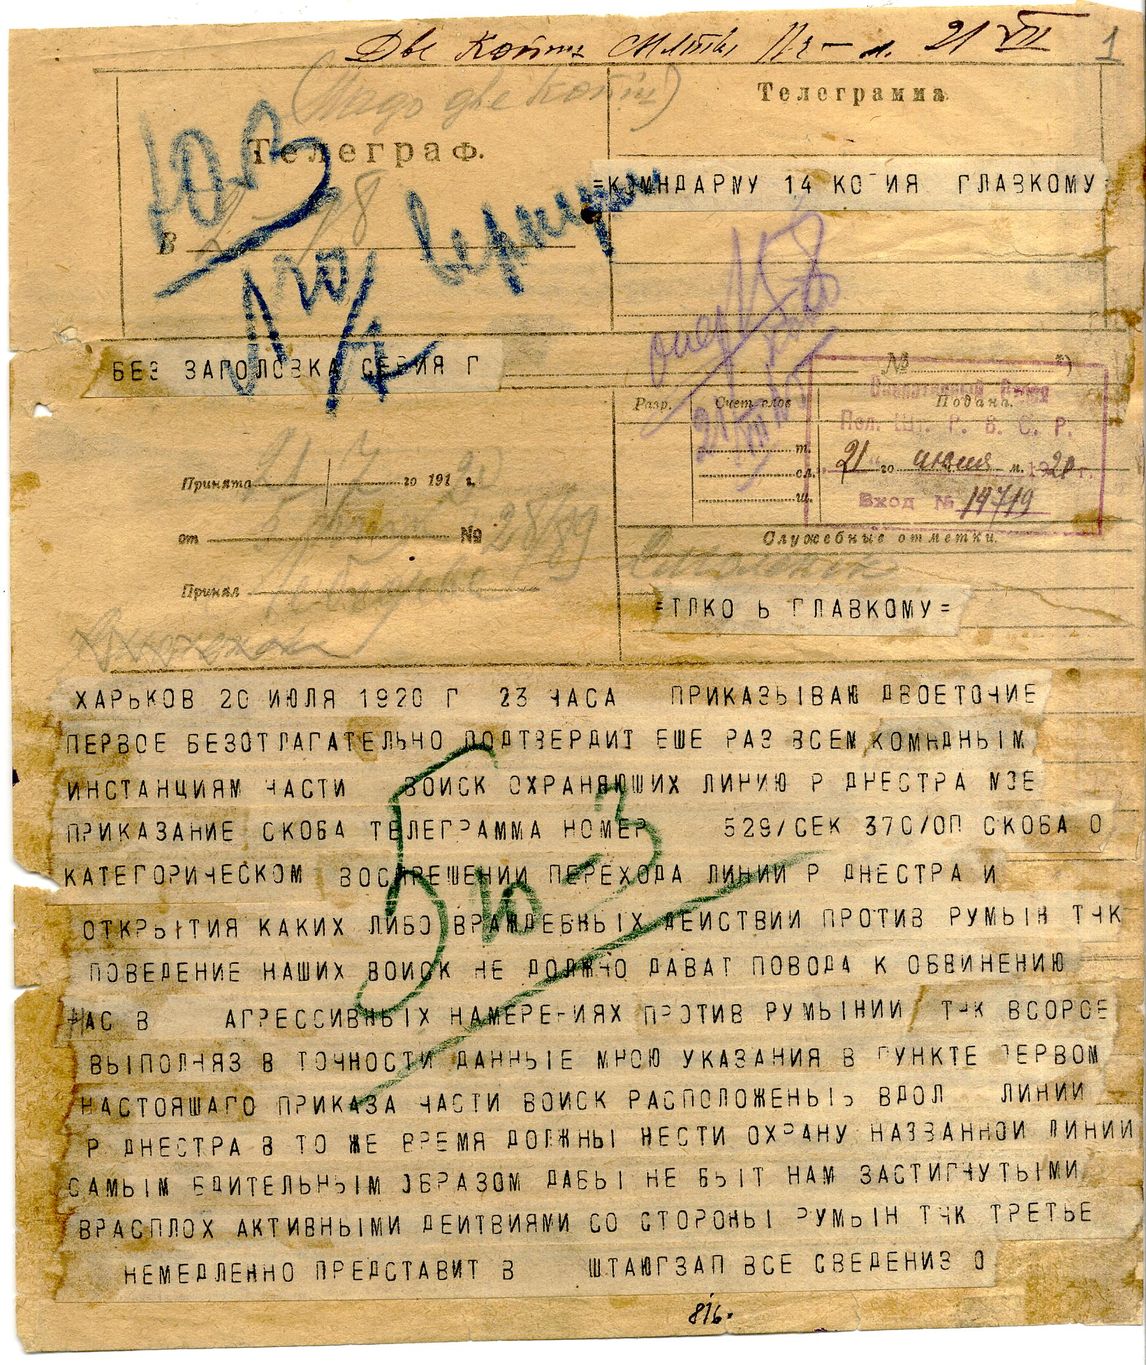 Две копии
21 VII
1
(Надо две копии)
Телеграмма
Телеграф.
Ю З
=КОМНДАРМУ 14 КОПИЯ ГЛАВКОМУ=
В
вернуть
БЕЗ ЗАГОЛОВКА СЕРИЯ Г
№
Разр.
Счет слов
Подана.
Пол. Шт. Р. В. С. Р.
т.
21 го июля м. 1920 г.
сл.
ш.
Вход № 19719
Принята 21 7 го 191 20 г.
от № 28/89
Служебные отметки.
Смоленск
Принял
=ТЛКО Ь ГЛАВКОМУ=
ХАРЬКОВ 20 ИЮЛЯ 1920 Г 23 ЧАСА ПРИКАЗЫВАЮ ДВОЕТОЧИЕ
ПЕРВОЕ БЕЗОТЛАГАТЕЛЬНО ПОДТВЕРДИТ ЕШЕ РАЗ ВСЕМ КОМНДНЫМ
ИНСТАНЦИЯМ ЧАСТИ ВОИСК ОХРАНЯЮШИХ ЛИНИЮ Р ДНЕСТРА МОЕ
ПРИКАЗАНИЕ СКОБА ТЕЛЕГРАММА НОМЕР 529/СЕК 370/ОП СКОБА О
КАТЕГОРИЧЕСКОМ ВОСПРЕШЕНИИ ПЕРЕХОДА ЛИНИИ Р ДНЕСТРА И
ОТКРЫТИЯ КАКИХ ЛИБО ВРАЖДЕБНЫХ ДЕИСТВИИ ПРОТИВ РУМЫН ТЧК
ПОВЕДЕНИЕ НАШИХ ВОИСК НЕ ДОЛЖНО ДАВАТ ПОВОДА К ОБВИНЕНИЮ
НАС В АГРЕССИВНЫХ НАМЕРЕНИЯХ ПРОТИВ РУМЫНИИ ТЧК ВСОРОЕ
ВЫПОЛНЯЗ В ТОЧНОСТИ ДАННЫЕ МНОЮ УКАЗАНИЯ В ПУНКТЕ ПЕРВОМ
НАСТОЯШАГО ПРИКАЗА ЧАСТИ ВОИСК РАСПОЛОЖЕНЫЬ ВДОЛ ЛИНИИ
Р ДНЕСТРА В ТО ЖЕ ВРЕМЯ ДОЛЖНЫ НЕСТИ ОХРАНУ НАЗВАННОИ ЛИНИИ
САМЫМ БДИТЕЛЬНЫМ ОБРАЗОМ ДАБЫ НЕ БЫТ НАМ ЗАСТИГНУТЫМИ
ВРАСПЛОХ АКТИВНЫМИ ДЕИТВИЯМИ СО СТОРОНЫ РУМЫН ТЧК ТРЕТЬЕ
НЕМЕДЛЕННО ПРЕДСТАВИТ В ШТАЮГЗАП ВСЕ СВЕДЕНИЗ О
816.